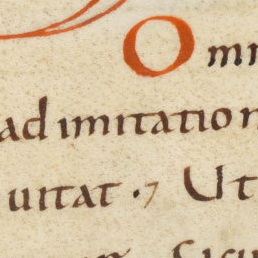 Omn
ad imitation
uitat · 7 Ut